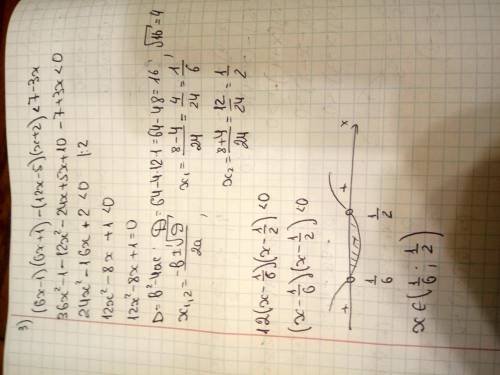 3) (6x-1)(6x+1)-(12x-5)(x+2)<7-3x
36x²-1-12x²-24x+5x+10-7+3x<0
24x²-16x+2<0 |:2
12x²-8x+1<0
12x²-8x+1=0
D=b²-4ac; D=64-4·12·1=64-48=16; √16=4
x₁,₂=(-b±√D)/2a; x₁=(8-4)/24=4/24=1/6
x₂=(8+4)/24=12/24=1/2
12(x-1/6)(x-1/2)<0
(x-1/6)(x-1/2)<0
+ - + x
1/6 1/2
x∈(1/6; 1/2)